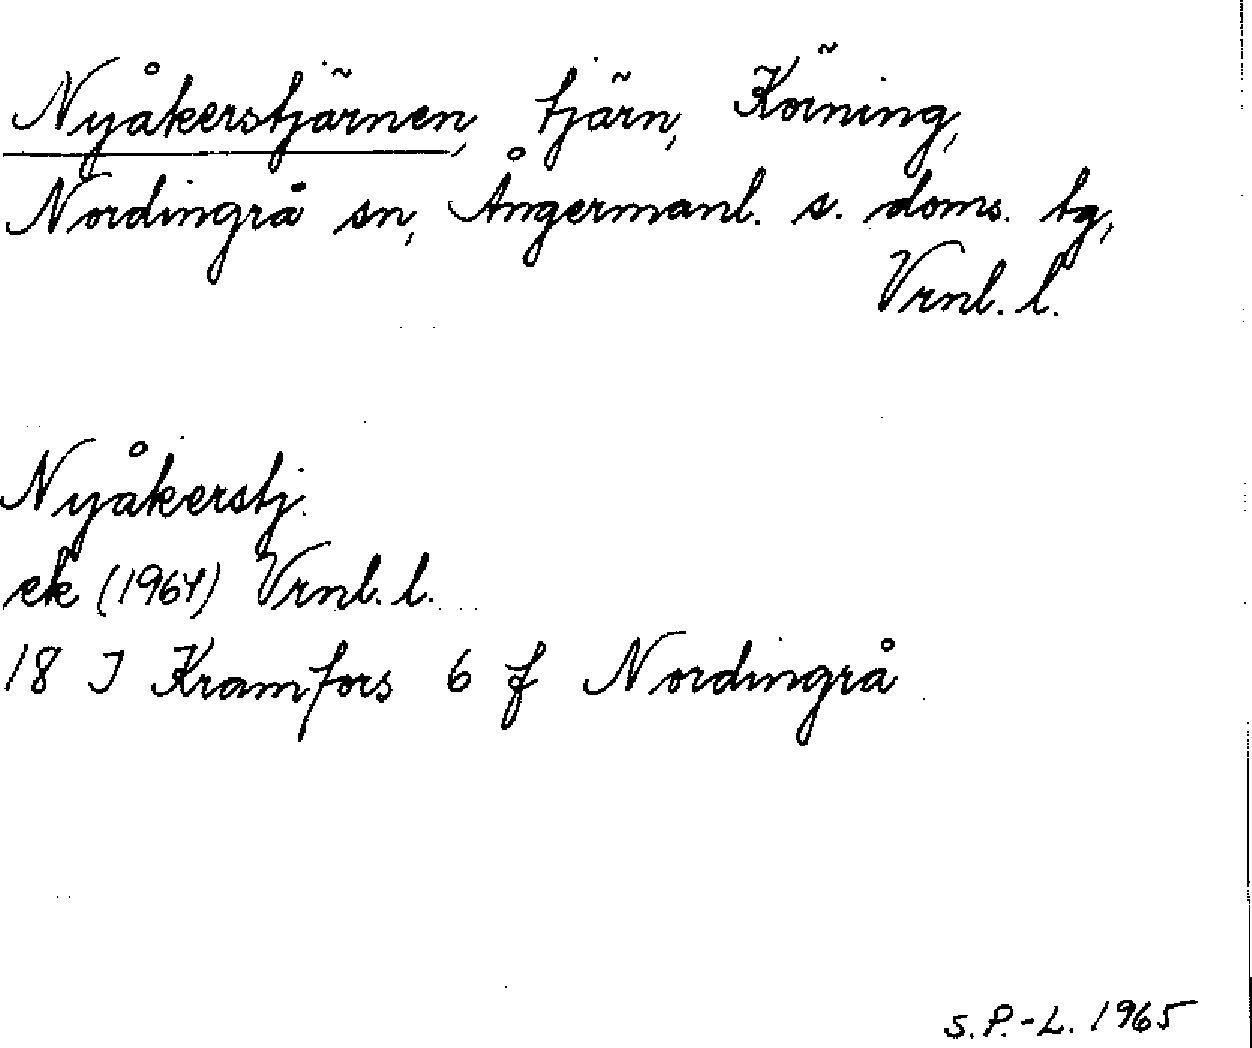 Nyåkerstjärnen, tjärn, Körning,
Nordingrå sn, Ångermanl. s. doms. tg,
Vrnl. l.
Nyåkerstj.
ek (1964) Vrnl. l.
18 J Kramfors 6 f Nordingrå
S.P.-L. 1965